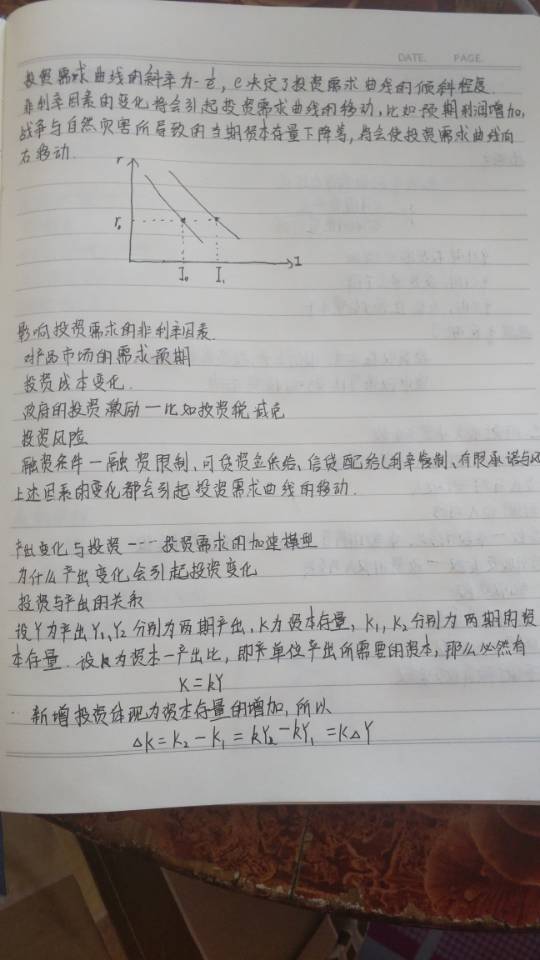 DATE. PAGE.
投资需求曲线的斜率为-1/e, e决定了投资需求曲线的倾斜程度.
非利率因素的变化将会引起投资需求曲线的移动,比如预期利润增加,
战争与自然灾害所导致的当期资本存量下降等,将会使投资需求曲线向
右移动.
r
r₀
I₀ I₁ I
影响投资需求的非利率因素.
对产品市场的需求预期
投资成本变化.
政府的投资激励一比如投资税减免
投资风险
融资条件一融资限制、可贷资金供给、信贷配给(利率管制、有限承诺与
上述因素的变化都会引起投资需求曲线的移动.
产出变化与投资——投资需求的加速模型
为什么产出变化会引起投资变化
投资与产出的关系
设Y为产出Y₁、Y₂分别为两期产出,K为资本存量,K₁,K₂分别为两期的资
本存量.设k为资本一产出比,即单位产出所需要的资本,那么必然有
K=kY
新增投资体现为资本存量的增加,所以
△K=K₂-K₁=kY₂-kY₁=K△Y